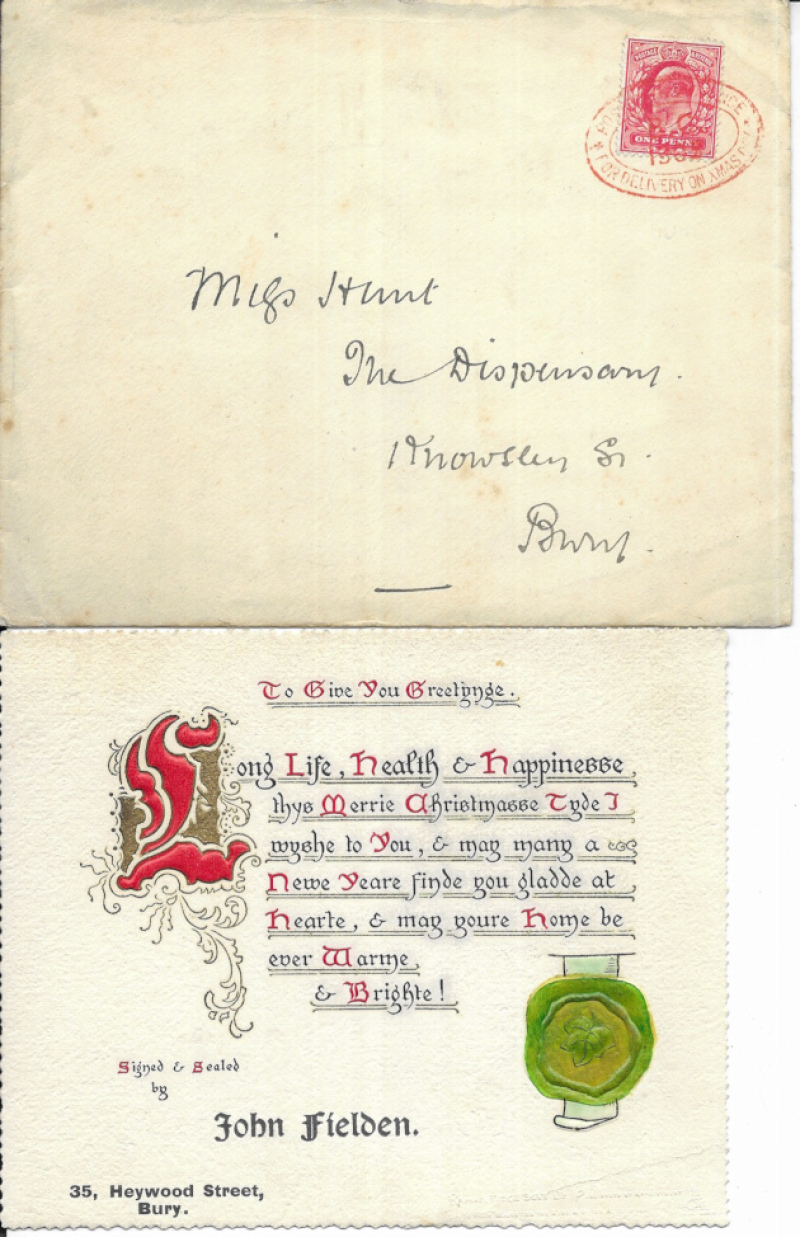 POSTAGE REVENUE
ONE PENNY
FOR DELIVERY ON XMAS DAY
Miss Hunt
The Dispensary.
Knowsley St.
Bury.
To Give You Greetynge.
Long Life, Health & Happinesse,
thys Merrie Christmasse Tyde I
wyshe to You, & may many a
Newe Yeare finde you gladde at
Hearte, & may youre Home be
ever Warme,
& Brighte!
Signed & Sealed
by
John Fielden.
35, Heywood Street,
Bury.